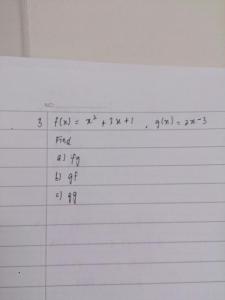 NO.
3 f(x) = x² + 3x + 1 , g(x) = 2x - 3
Find
a) fg
b) gf
c) gg